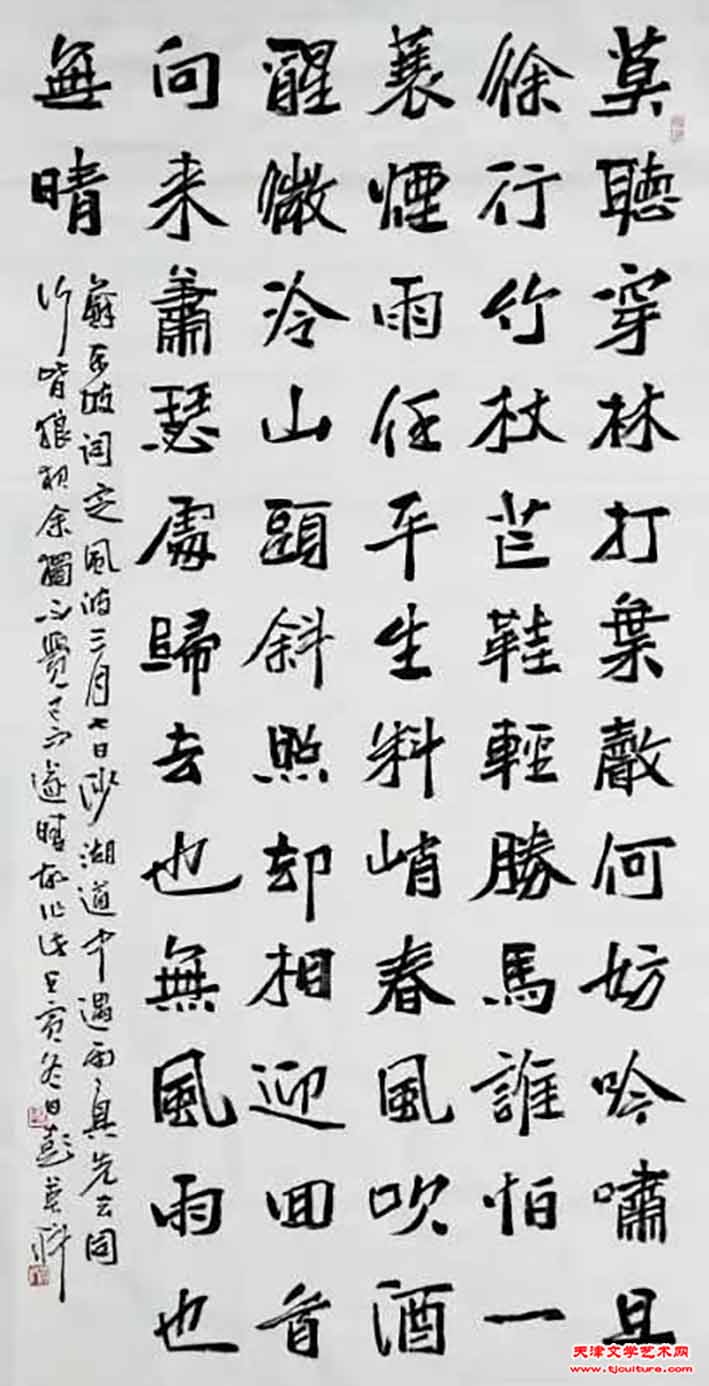 莫聽穿林打葉聲何妨吟嘯且
徐行竹杖芒鞋輕勝馬誰怕一
蓑煙雨任平生料峭春風吹酒
醒微冷山頭斜照却相迎回首
向来蕭瑟處歸去也無風雨也
無晴
蘇東坡詞定風波三月七日沙湖道中遇雨〻具先去同
行皆狼狽余獨不覺已而遂晴故作此壬寅冬日彭英科
天津文学艺术网
www.tjculture.com